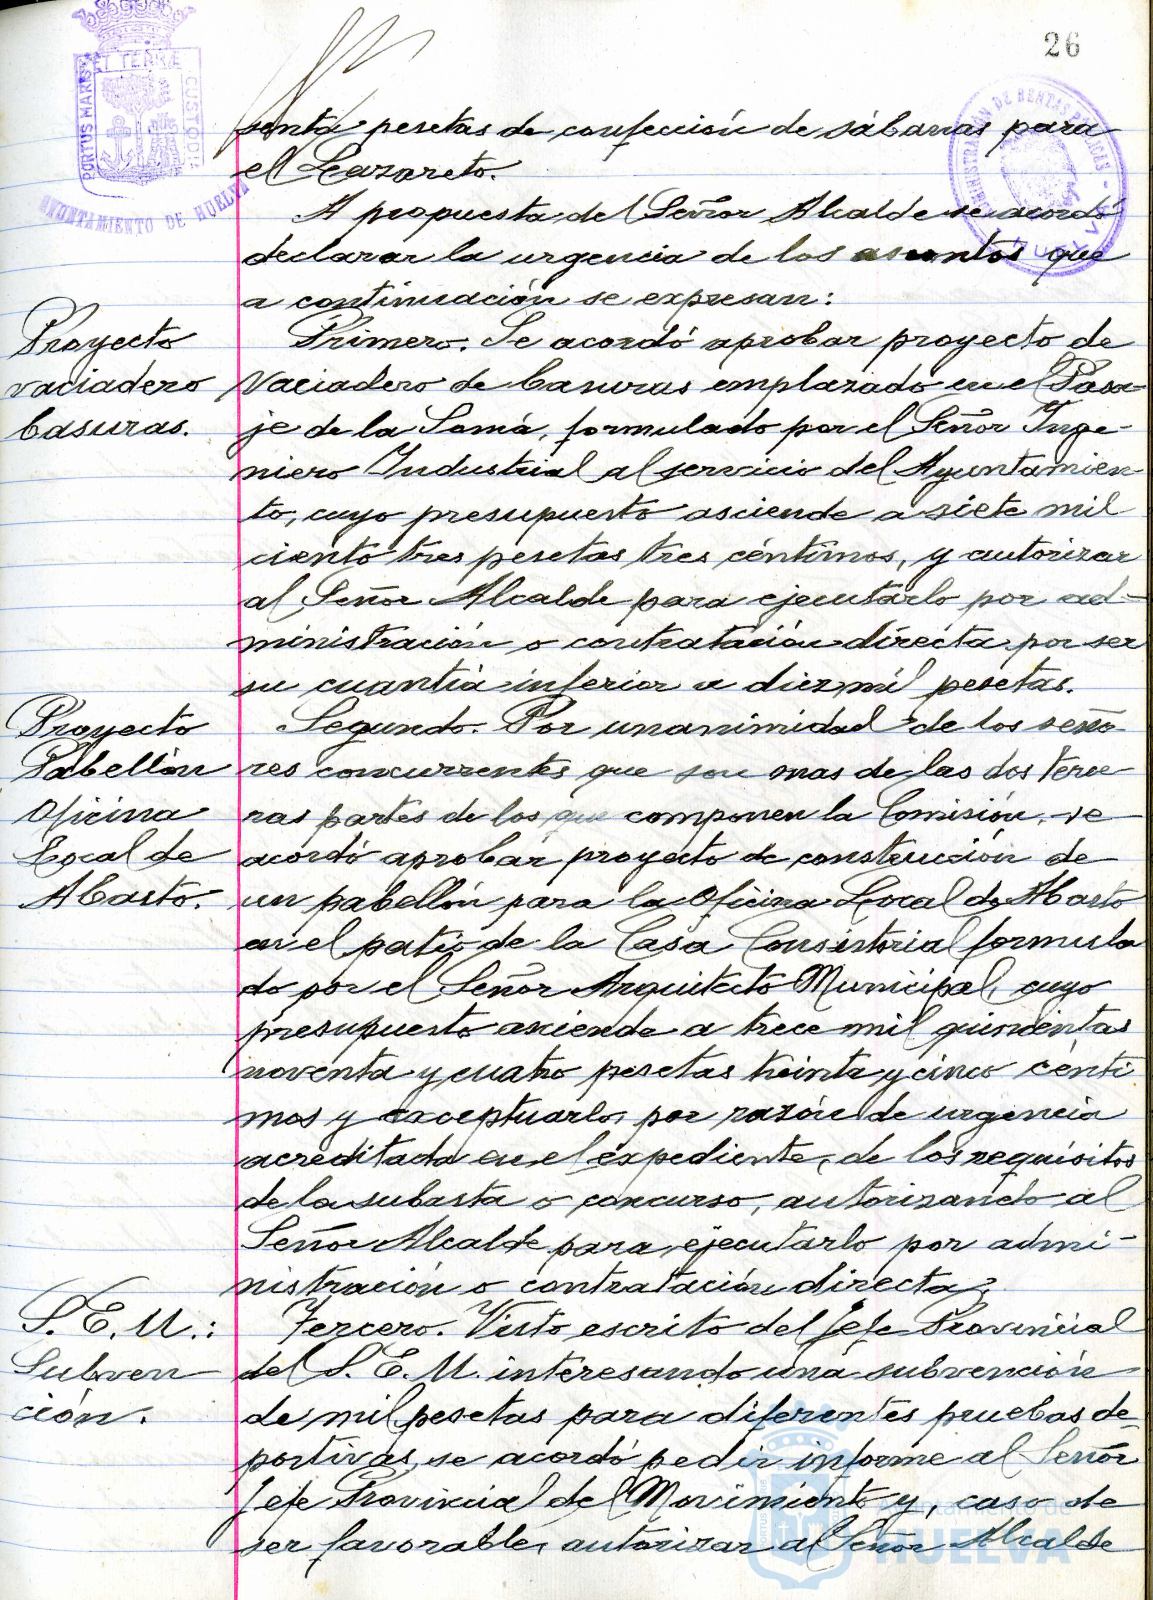 26
PORTUS MARIS ET TERRÆ CUSTODIA
AYUNTAMIENTO DE HUELVA
ADMINISTRACION DE RENTAS PUBLICAS - HUELVA
senta pesetas de confección de sábanas para
el Lazareto.
A propuesta del Señor Alcalde se acordó
declarar la urgencia de los asuntos que
a continuación se expresan:
Proyecto
vaciadero
basuras.
Primero. Se acordó aprobar proyecto de
Vaciadero de basuras emplazado en el Pasa-
je de la Soma, formulado por el Señor Inge-
niero Industrial al servicio del Ayuntamien-
to, cuyo presupuesto asciende a siete mil
ciento tres pesetas tres céntimos, y autorizar
al Señor Alcalde para ejecutarlo por ad-
ministración o contratación directa por ser
su cuantía inferior a diez mil pesetas.
Proyecto
Pabellón
Oficina
Local de
Abasto.
Segundo. Por unanimidad de los seño-
res concurrentes que son mas de las dos terce-
ras partes de los que componen la Comisión, se
acordó aprobar proyecto de construcción de
un pabellón para la Oficina Local de Abasto
en el patio de la Casa Consistorial formula
do por el Señor Arquitecto Municipal, cuyo
presupuesto asciende a trece mil quinientas
noventa y cuatro pesetas treinta y cinco cénti
mos y exceptuarlo, por razón de urgencia
acreditada en el expediente, de los requisitos
de la subasta o concurso, autorizando al
Señor Alcalde para ejecutarlo por admi-
nistración o contratación directa.
S. E. U.:
Subven
ción.
Tercero. Visto escrito del Jefe Provincial
del S. E. U. interesando una subvención
de mil pesetas para diferentes pruebas de-
portivas, se acordó pedir informe al Señor
Jefe Provincial del Movimiento y, caso de
ser favorable, autorizar al Señor Alcalde
Ayuntamiento de
HUELVA